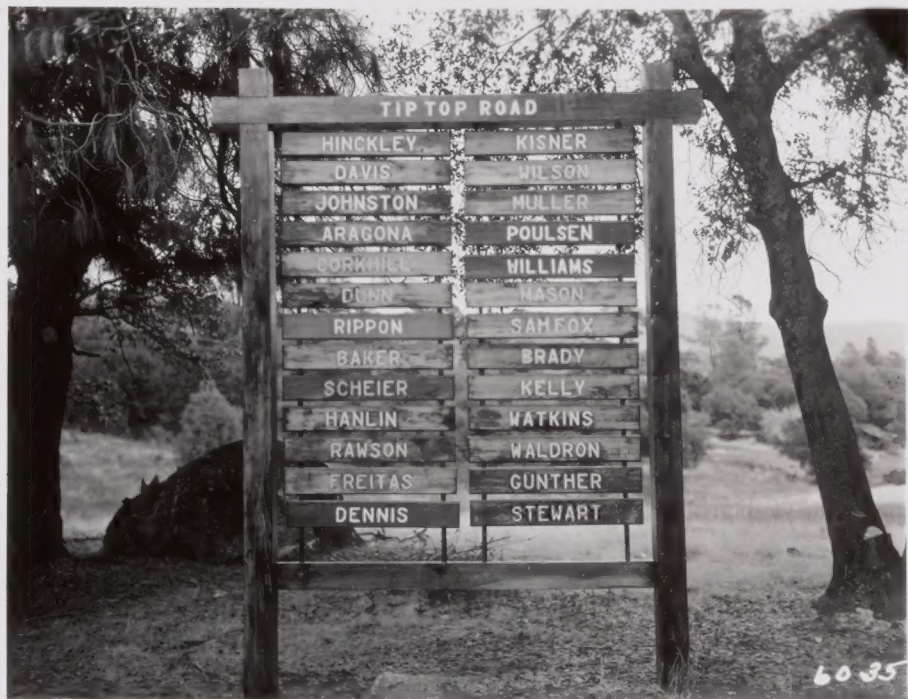 TIP TOP ROAD
HINCKLEY
DAVIS
JOHNSTON
ARAGONA
CORKHILL
DUNN
RIPPON
BAKER
SCHEIER
HANLIN
RAWSON
FREITAS
DENNIS
KISNER
WILSON
MULLER
POULSEN
WILLIAMS
MASON
SAM FOX
BRADY
KELLY
WATKINS
WALDRON
GUNTHER
STEWART
60-35